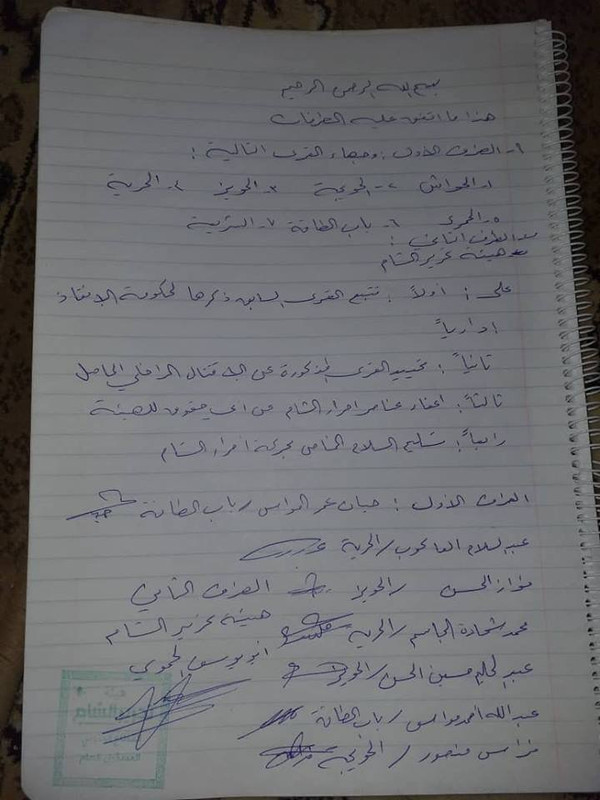 بسم الله الرحمن الرحيم
هذا ما اتفق عليه الطرفان
١- الطرف الأول: وجهاء القرى التالية:
١- الحواش ٢- الحويجة ٣- الحويز ٤- الحرية
٥- الحمرا ٦- باب الطاقة ٧- الشريعة
الطرف الثاني:
هيئة تحرير الشام
على: أولاً: تتبع القرى السابق ذكرها لحكومة الإنقاذ
إدارياً
ثانياً: تحييد القرى المذكورة عن الاقتتال الداخلي الحاصل
ثالثاً: إعفاء عناصر احرار الشام من أي حقوق للهيئة
رابعاً: تسليم السلاح الخاص بحركة احرار الشام
الطرف الأول: حيان عمر المواس / باب الطاقة
عبدالسلام / الحرية
فواز الحسن / الحويز الطرف الثاني
محمد شحادة الجاسم / الحرية هيئة تحرير الشام
عبد الحليم حسين الحسن / الحويز أبو يوسف الحموي
عبد الله أحمد مواس / باب الطاقة
فراس منصور / الحويجة